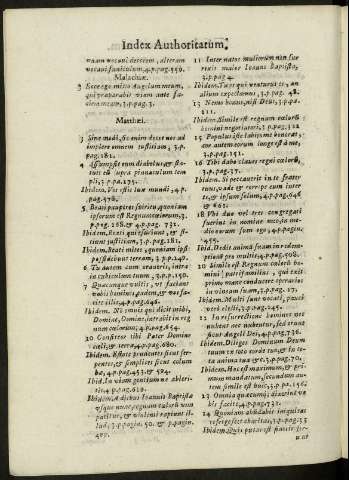 Index Authoritatum.
unam vocavi decorem, alteram
vocavi funiculum, 4.p.pag.559.
Malachiæ.
3 Ecce ego mitto Angelum meum,
qui præparabit viam ante fa-
ciem meam, 3.p.pag.3.
Matthæi.
3 Sine modo, sic enim decet nos ad
implere omnem iustitiam, 3.p.
pag.181.
4 Assumpsit eum diabolus, & sta-
tuit eum supra pinnaculum tem
pli, 3.p.pa.175.
Ibidem, Vos estis lux mundi, 4.p.
pag.378.
5 Beati pauperes spiritu, quoniam
ipsorum est Regnum cælorum, 3.
p.pag. 268. & 4.p.pag. 731.
Ibidem, Beati qui esuriunt, & si-
tiunt iustitiam, 3.p.pag.181.
Ibidem, Beati mites quoniam ipsi
possidebunt terram, 3.p.pa.240.
6 Tu autem cum oraveris, intra
in cubiculum tuum, 3.p.p.150.
7 Quæcunque vultis, ut faciant
vobis homines, eadem, & vos fa-
cite illis, 4.p.pag.646.
Ibidem. Nõ omnis qui dicit mihi,
Domine, Domine, intrabit in reg
num cælorum; 4.p.pag.654.
10 Confiteor tibi Pater Domine
cæli, & terræ, 4.p.pag.680.
Ibidem. Estote prudentes sicut ser-
pentes, & simplices sicut colum
ba, 4.p.pag.453. & 584.
Ibid. In viam gentium ne abieri-
tis, 4.p.pag.619.
Ibidem, A diebus Ioannis Baptistæ
& usque nunc, regnum cælorum vim
patitur, & violenti rapiunt il-
lud, 3.p.pagin. 50. & p.pagin.
409.
11 Inter natos mulierum non sur
rexit maior Ioanne Baptista,
3.p.pag 4.
Ibidem. Tu es qui venturus es, an
alium expectamus, 3.p.pag. 48.
13 Nemo bonus, nisi Deus, 3.p.pa.
111.
Ibidem. Simile est regnum cælorũ
homini negotiatori, 3.p.pag.312
15 Populus iste labijs me honorat,
cor autem eorum longe est à me,
3.p.pag.151.
16 Tibi dabo claves regni cælorũ,
3.p.pag.37.
Ibidem. Si peccaverit in te frater
tuus, vade & corripe eum inter
te, & ipsum solum, 4.p.pag.646
& 663.
18 Ubi duo vel tres congregati
fuerint in nomine meo, in me-
dio eorum sum ego, 4.p.pagin.
459.
Ibid. Dedit animã suam in redem-
ptionẽ pro multis, 4.p.pag.508.
20 Simile est Regnum cælorũ ho-
mini patrifamilias, qui exijt
primo mane conducere operarios
in vineam suam, 3.p.pag.27.
Ibidem. Multi sunt vocati, pauci
vero electi, 3.p.pag.205.
22 In resurrectione homines nec
nubent nec nubentur, sed erunt
sicut Angeli Dei, 4.p.pag.736.
Ibidem. Diliges Dominum Deum
tuum in toto corde tuo, & in to-
ta anima tua, & 3.p.pag.70.
Ibidem, Hoc est maximum, & pri-
mum mandatum, secundum au-
tem simile est huic, 3.p pa.156.
23 Omnia quæcumque dixerint vo-
bis facite, 4.p.pag.731.
24 Quoniam abundabit iniquitas
refrigescet charitas, 3.p.pag.
Ibidem. Quis putas est fidelis ser-
vus